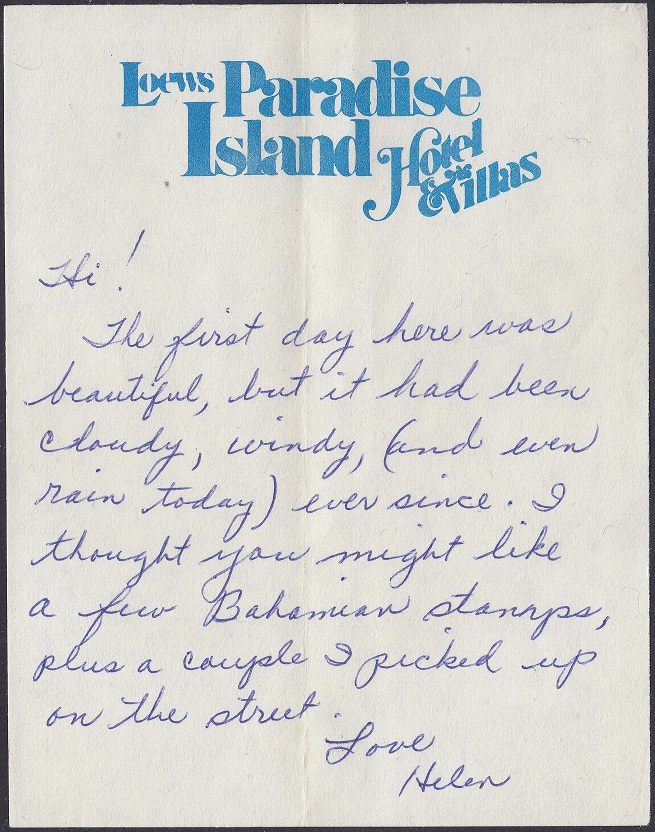 Loews Paradise
Island Hotel
& Villas
Hi!
The first day here was
beautiful, but it had been
cloudy, windy, (and even
rain today) ever since. I
thought you might like
a few Bahamian stamps,
plus a couple I picked up
on the street.
Love
Helen